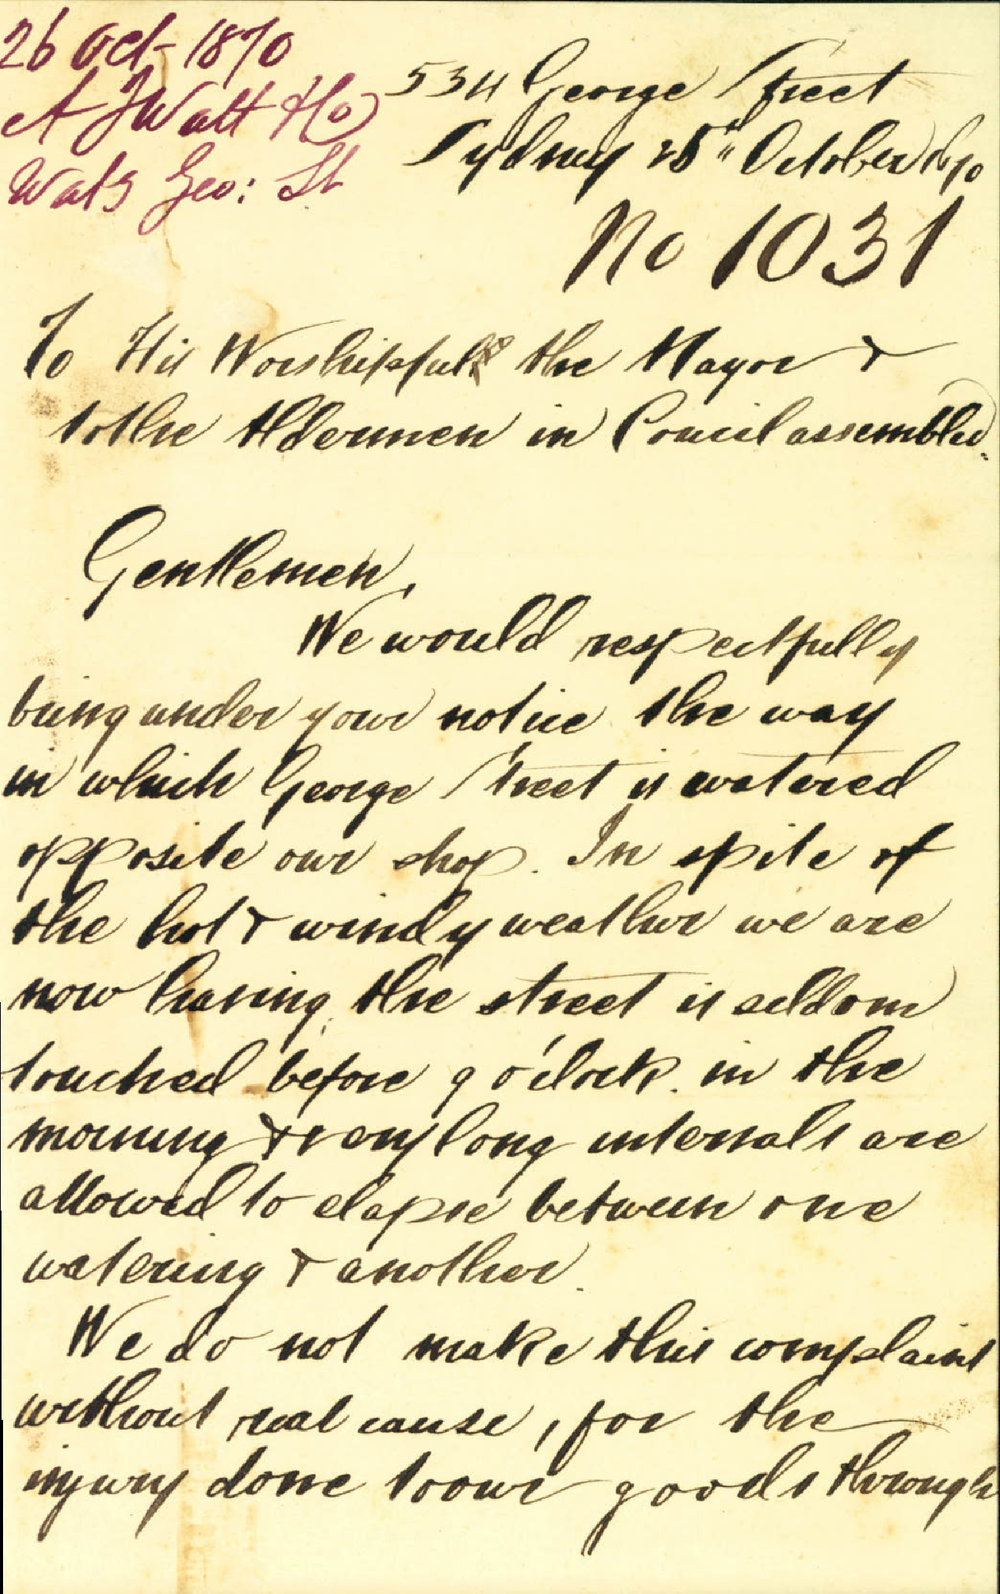 26 Oct - 1870
A J Watt & Co
Wat.g Geo: St
534 George Street
Sydney 25th October 1870
No 1031
To His Worshipful the Mayor &
to the Aldermen in Council assembled.
Gentlemen,
We would respectfully
bring under your notice the way
in which George Street is watered
opposite our shop. In spite of
the hot & windy weather we are
now having, the street is seldom
touched before 9 o'clock. in the
morning & very long intervals are
allowed to elapse between one
watering & another.
We do not make this complaint
without real cause, for the
injury done to our goods through